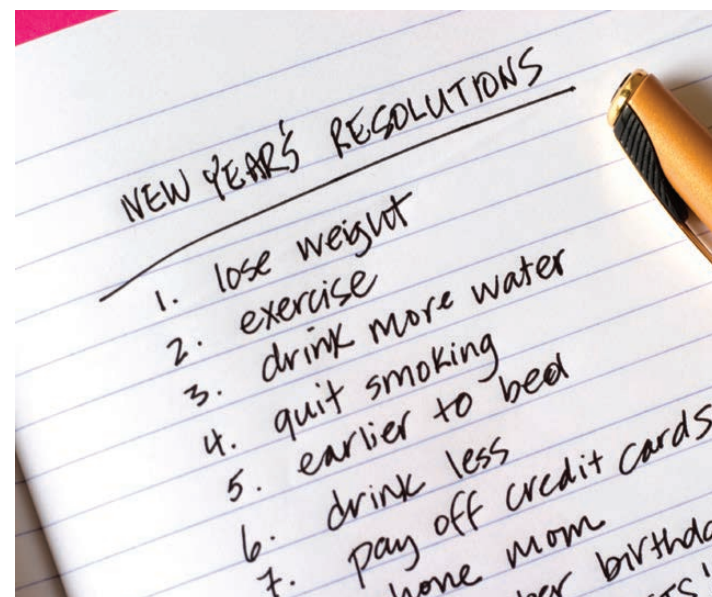 NEW YEAR'S RESOLUTIONS
1. lose weight
2. exercise
3. drink more water
4. quit smoking
5. earlier to bed
6. drink less
7. pay off credit cards
mom